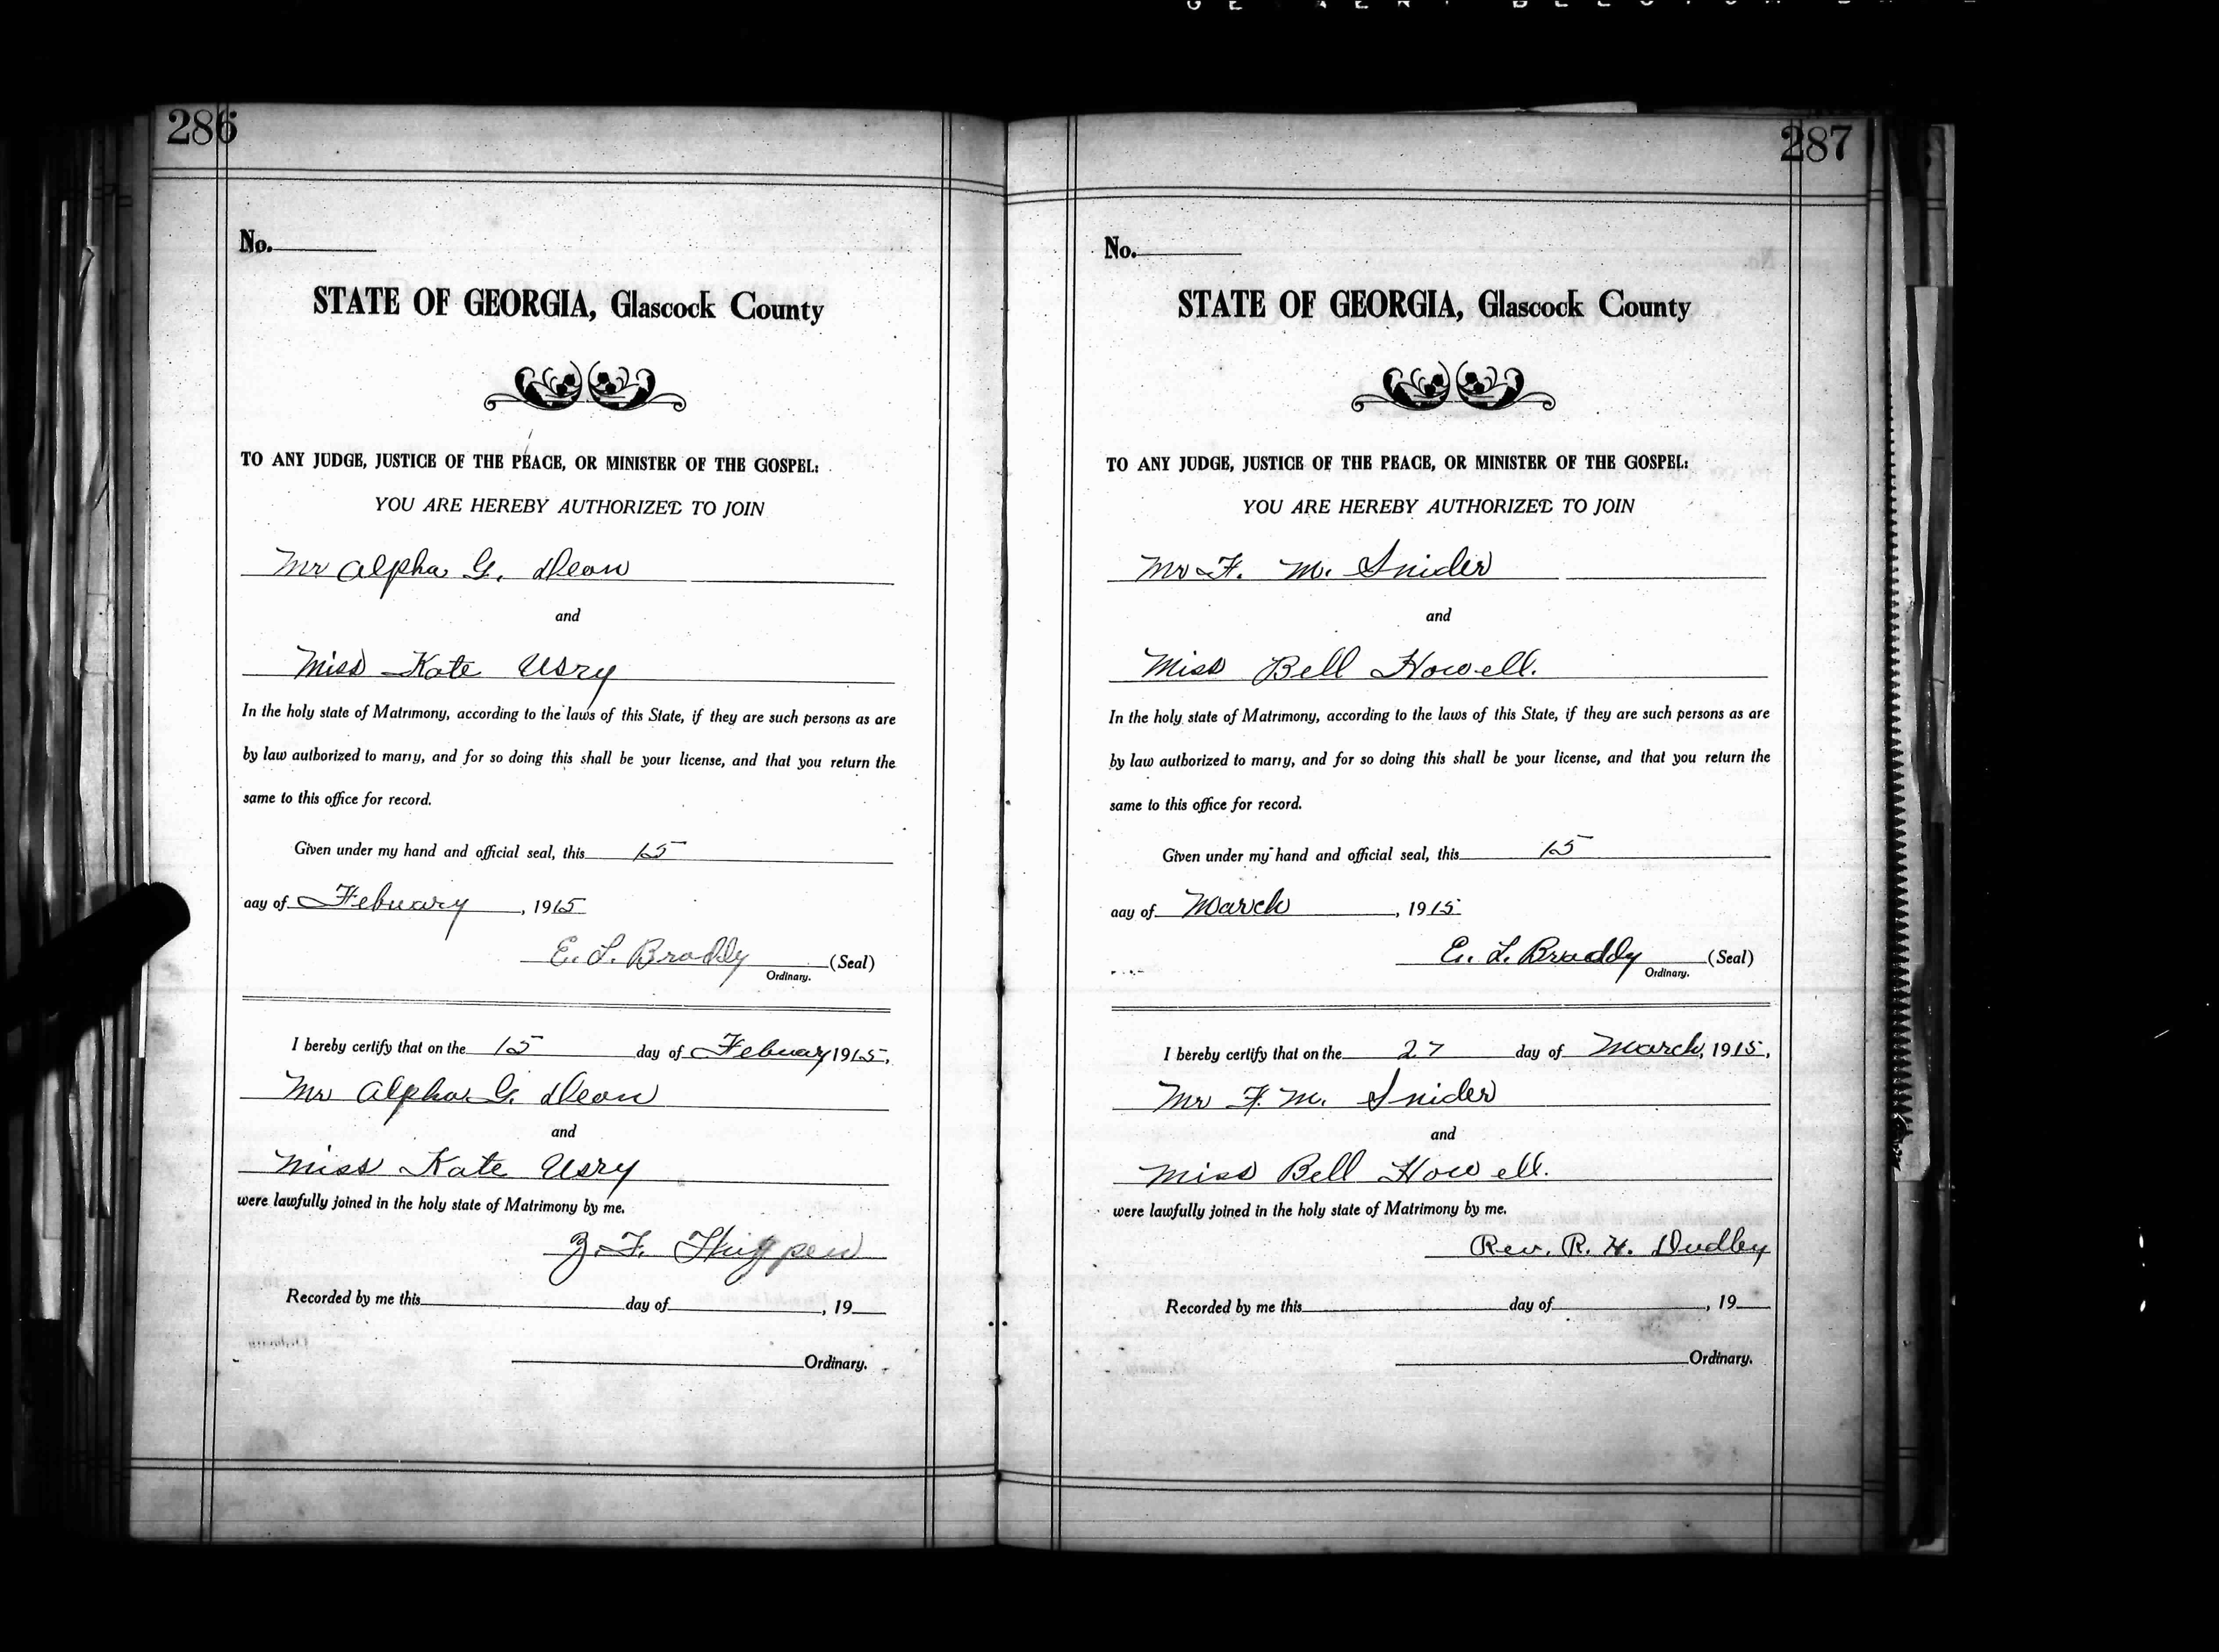 286
No.
STATE OF GEORGIA, Glascock County
TO ANY JUDGE, JUSTICE OF THE PEACE, OR MINISTER OF THE GOSPEL:
YOU ARE HEREBY AUTHORIZED TO JOIN
Mr Alpha G. Deon
and
Miss Kate Usry
In the holy state of Matrimony, according to the laws of this State, if they are such persons as are
by law authorized to marry, and for so doing this shall be your license, and that you return the
same to this office for record.
Given under my hand and official seal, this 15
day of Febuary, 1915
E. L. Braddy (Seal)
Ordinary.
I hereby certify that on the 15 day of Febuary 1915,
Mr Alpha G. Deon
and
Miss Kate Usry
were lawfully joined in the holy state of Matrimony by me.
Z. F. Thigpen
Recorded by me this day of , 19
Ordinary.
287
No.
STATE OF GEORGIA, Glascock County
TO ANY JUDGE, JUSTICE OF THE PEACE, OR MINISTER OF THE GOSPEL:
YOU ARE HEREBY AUTHORIZED TO JOIN
Mr F. M. Snider
and
Miss Bell Howell.
In the holy state of Matrimony, according to the laws of this State, if they are such persons as are
by law authorized to marry, and for so doing this shall be your license, and that you return the
same to this office for record.
Given under my hand and official seal, this 15
day of March, 1915
E. L. Braddy (Seal)
Ordinary.
I hereby certify that on the 27 day of March, 1915,
Mr F. M. Snider
and
Miss Bell Howell.
were lawfully joined in the holy state of Matrimony by me.
Rev. R. H. Dudley
Recorded by me this day of , 19
Ordinary.